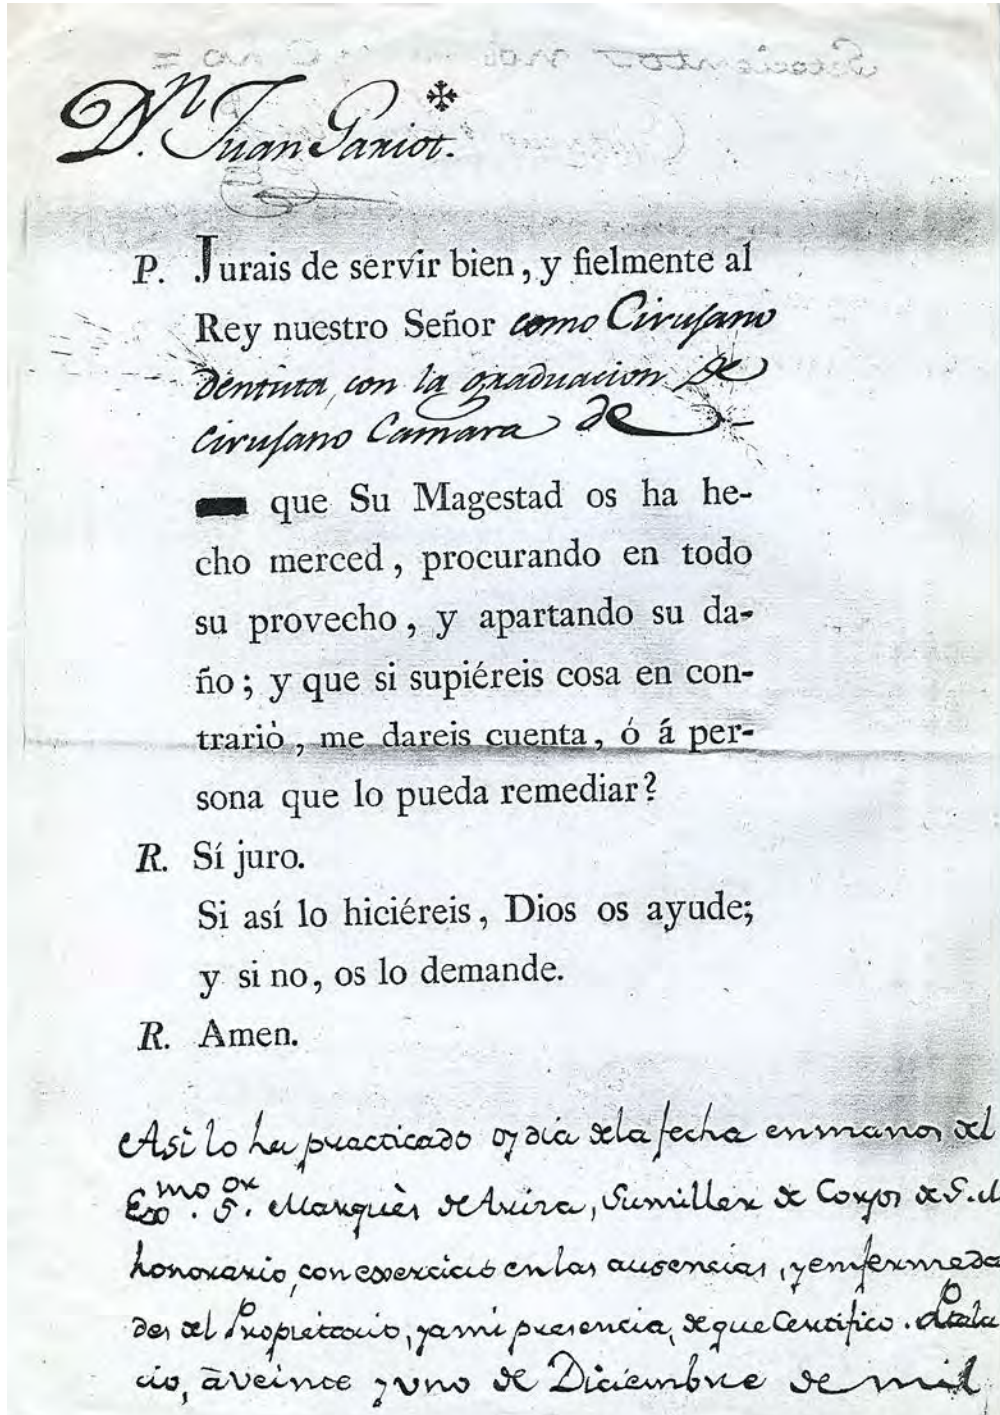 ✠
D.n Juan Gariot.
P. Jurais de servir bien, y fielmente al
Rey nuestro Señor como Cirujano
dentista, con la graduacion de
cirujano Camara de
que Su Magestad os ha he-
cho merced, procurando en todo
su provecho, y apartando su da-
ño; y que si supiéreis cosa en con-
trario, me dareis cuenta, ó á per-
sona que lo pueda remediar?
R. Sí juro.
Si así lo hiciéreis, Dios os ayude;
y si no, os lo demande.
R. Amen.
Asi lo ha practicado oy dia de la fecha en manos del
Exmo. S.or Marquès de Ariza, Sumiller de Corps de S. M
honorario, con exercicio en las ausencias, y enfermeda
des del Propietario, y a mi presencia, de que Certifico. Pala
cio, à veinte y uno de Diciembre de mil